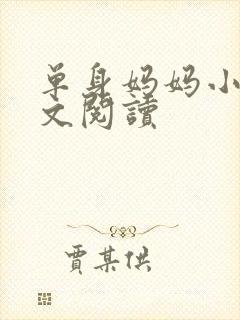 单身妈妈小
文閱讀
贾某供